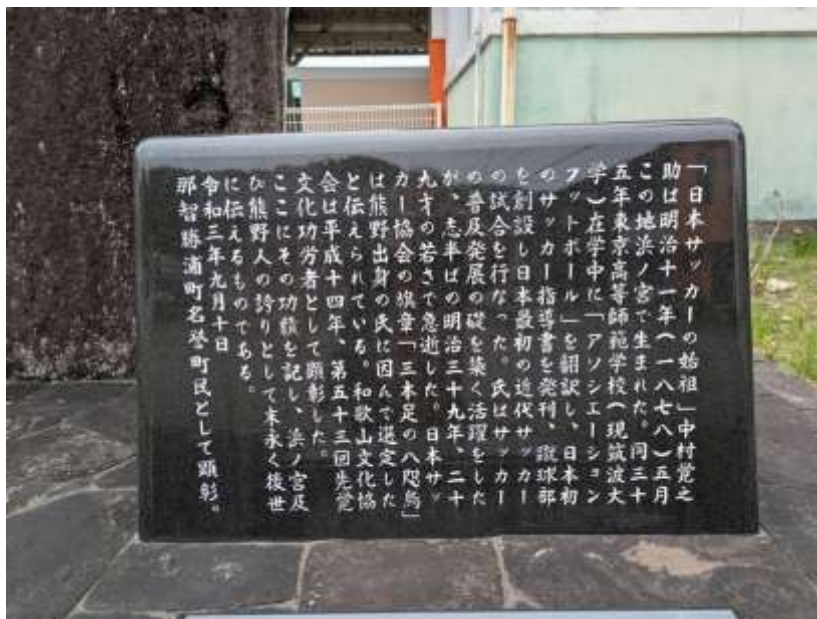 「日本サッカーの始祖」中村覚之
助は明治十一年(一八七八)五月
この地浜ノ宮で生まれた。同三十
五年東京高等師範学校(現筑波大
学)在学中に「アソシエーション
フットボール」を翻訳し、日本初
のサッカー指導書を発刊、蹴球部
を創設し日本最初の近代サッカー
の試合を行なった。氏はサッカー
の普及発展の礎を築く活躍をした
が、志半ばの明治三十九年、二十
九才の若さで急逝した。日本サッ
カー協会の旗章「三本足の八咫烏」
は熊野出身の氏に因んで選定した
と伝えられている。和歌山文化協
会は平成十四年、第五十三回先覚
文化功労者として顕彰した。
ここにその功績を記し、浜ノ宮及
び熊野人の誇りとして末永く後世
に伝えるものである。
令和三年九月十日
那智勝浦町名誉町民として顕彰。